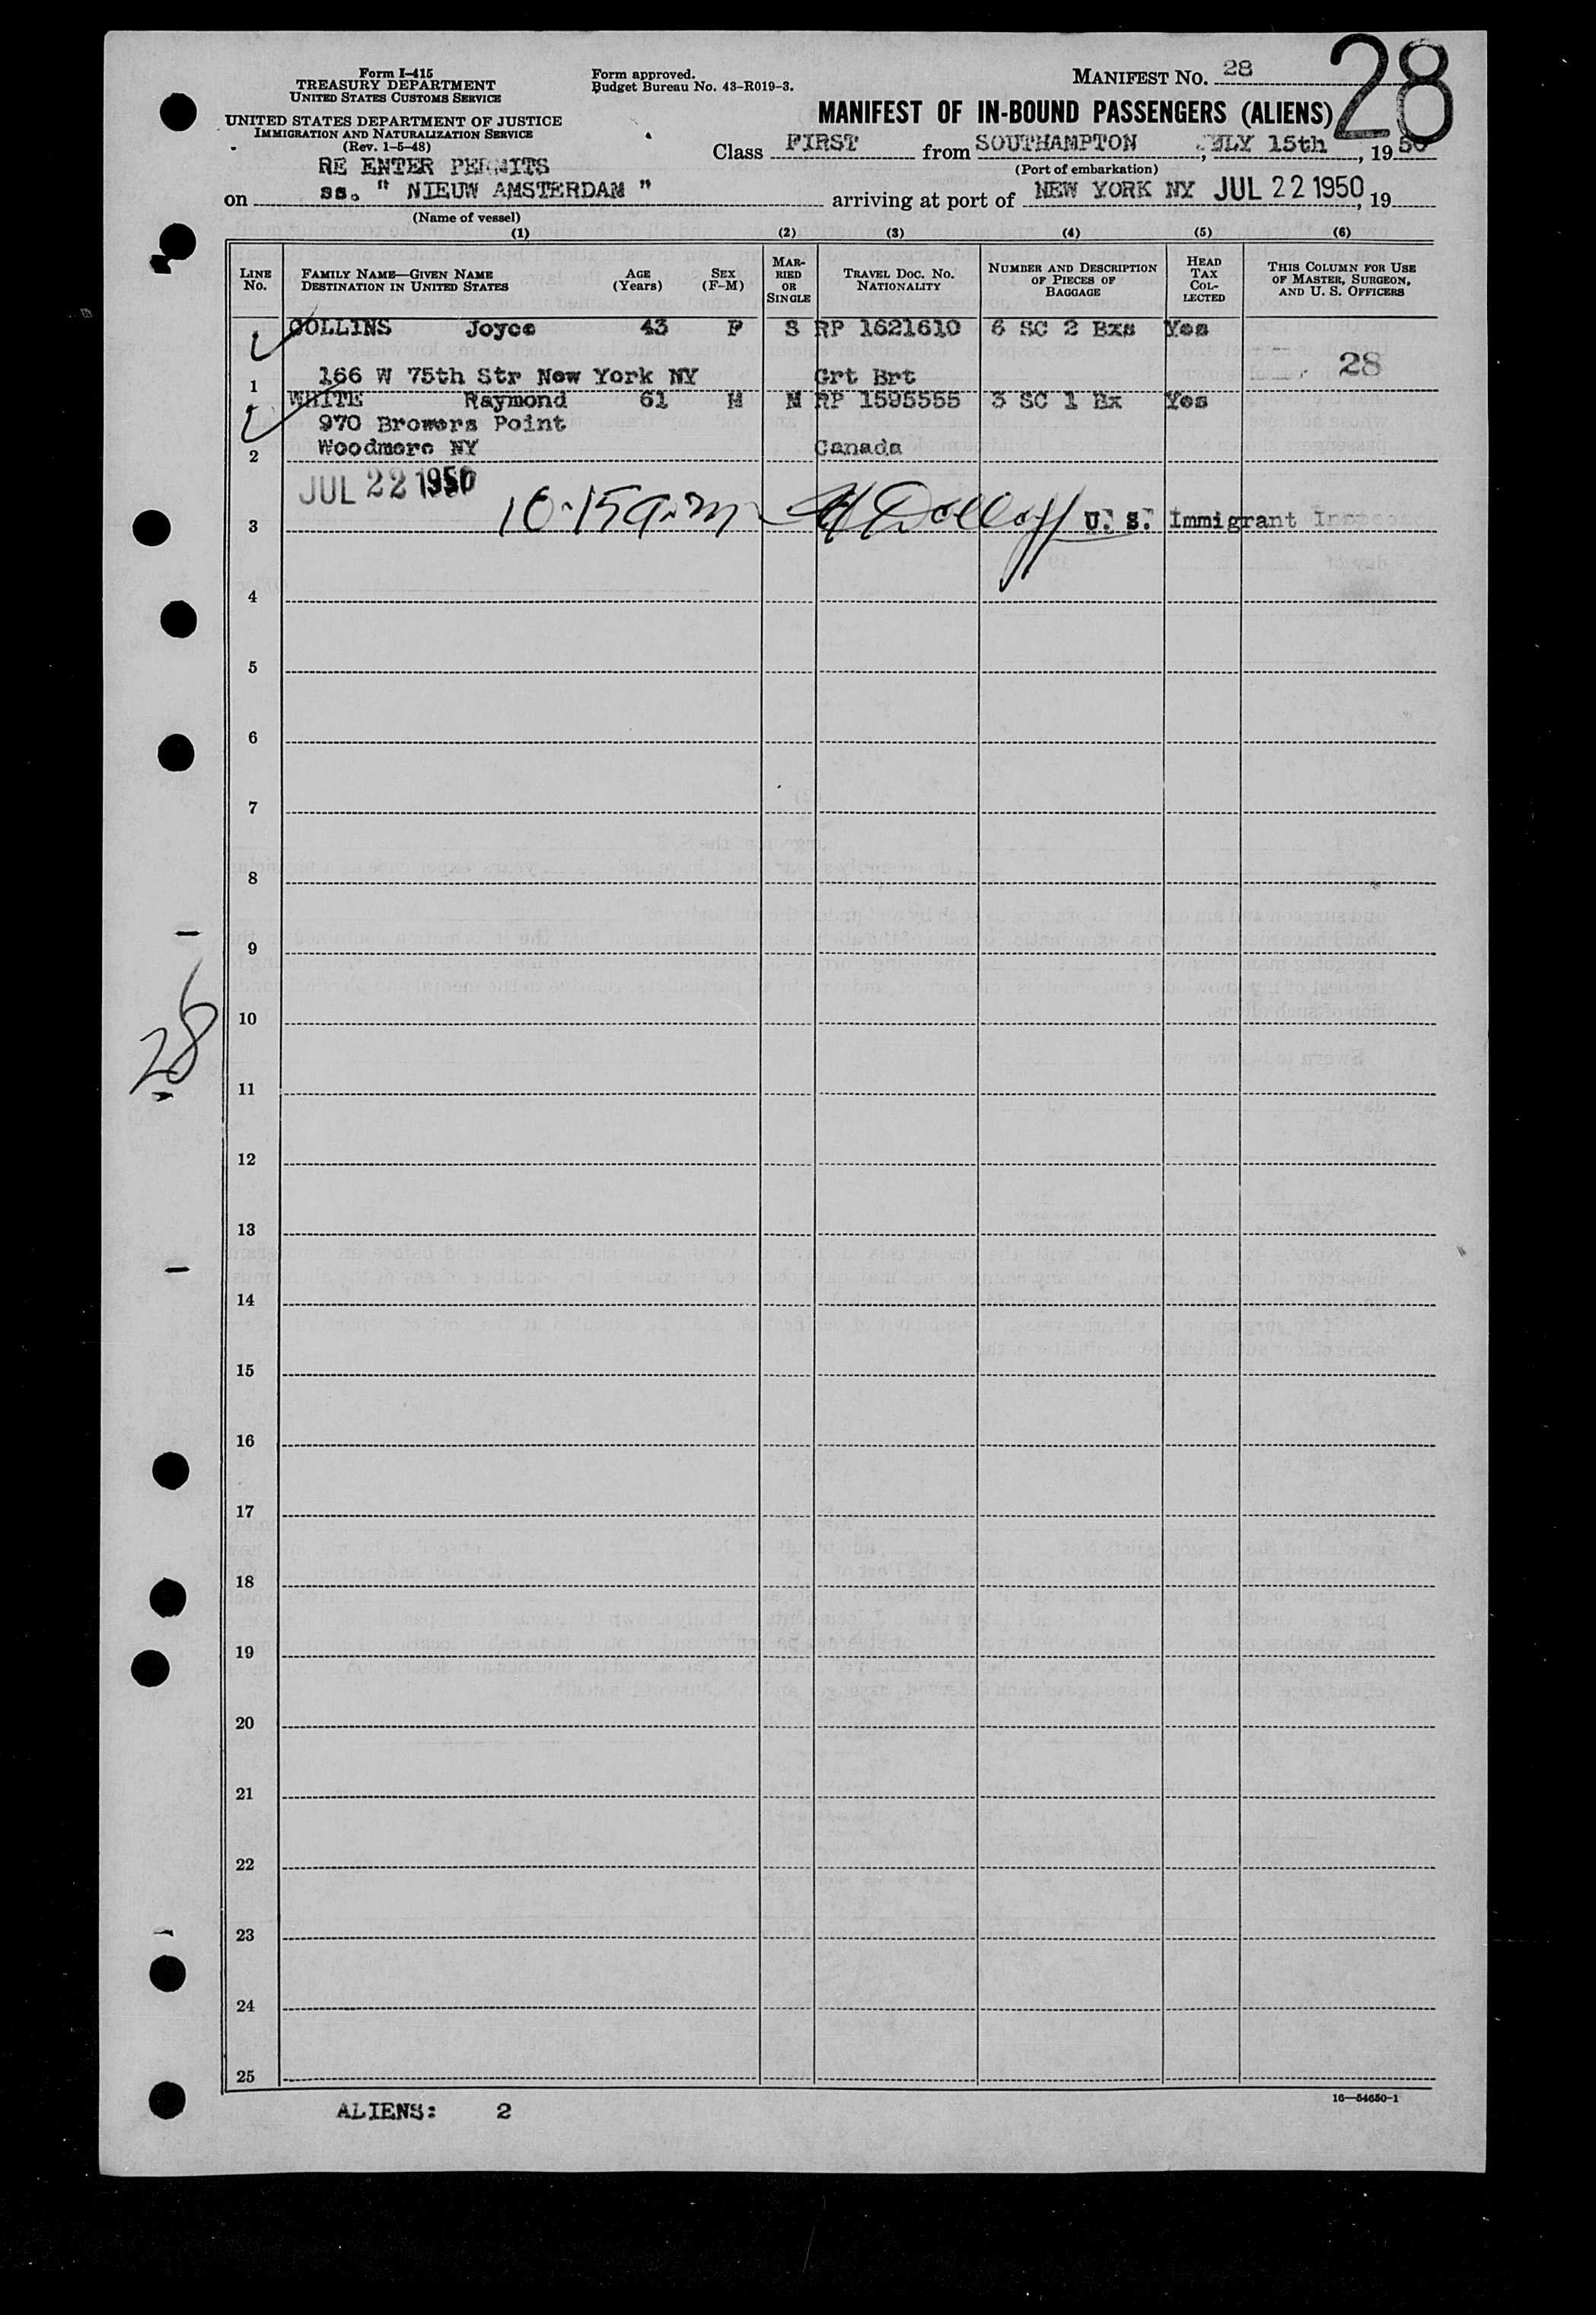 Form I-415
TREASURY DEPARTMENT
UNITED STATES CUSTOMS SERVICE
UNITED STATES DEPARTMENT OF JUSTICE
IMMIGRATION AND NATURALIZATION SERVICE
(Rev. 1-5-48)
Form approved.
Budget Bureau No. 43-R019-3.
MANIFEST No. 28
28
MANIFEST OF IN-BOUND PASSENGERS (ALIENS)
Class FIRST from SOUTHAMPTON, JULY 15th, 1950
(Port of embarkation)
RE ENTER PERMITS
on ss. " NIEUW AMSTERDAM " arriving at port of NEW YORK NY JUL 22 1950, 19
(Name of vessel)
(1) (2) (3) (4) (5) (6)
LINE No. FAMILY NAME—GIVEN NAME DESTINATION IN UNITED STATES AGE (Years) SEX (F-M) MARRIED OR SINGLE TRAVEL DOC. NO. NATIONALITY NUMBER AND DESCRIPTION OF PIECES OF BAGGAGE HEAD TAX COLLECTED THIS COLUMN FOR USE OF MASTER, SURGEON, AND U. S. OFFICERS
COLLINS Joyce 43 F S RP 1621610 6 SC 2 Bxs Yes
1 166 W 75th Str New York NY Grt Brt 28
WHITE Raymond 61 M M RP 1595555 3 SC 1 Bx Yes
970 Browers Point
2 Woodmere NY Canada
JUL 22 1950
3 10.15 a.m. U. S. Immigrant
4
5
6
7
8
9
10
28
11
12
13
14
15
16
17
18
19
20
21
22
23
24
25
ALIENS: 2
16—54650-1